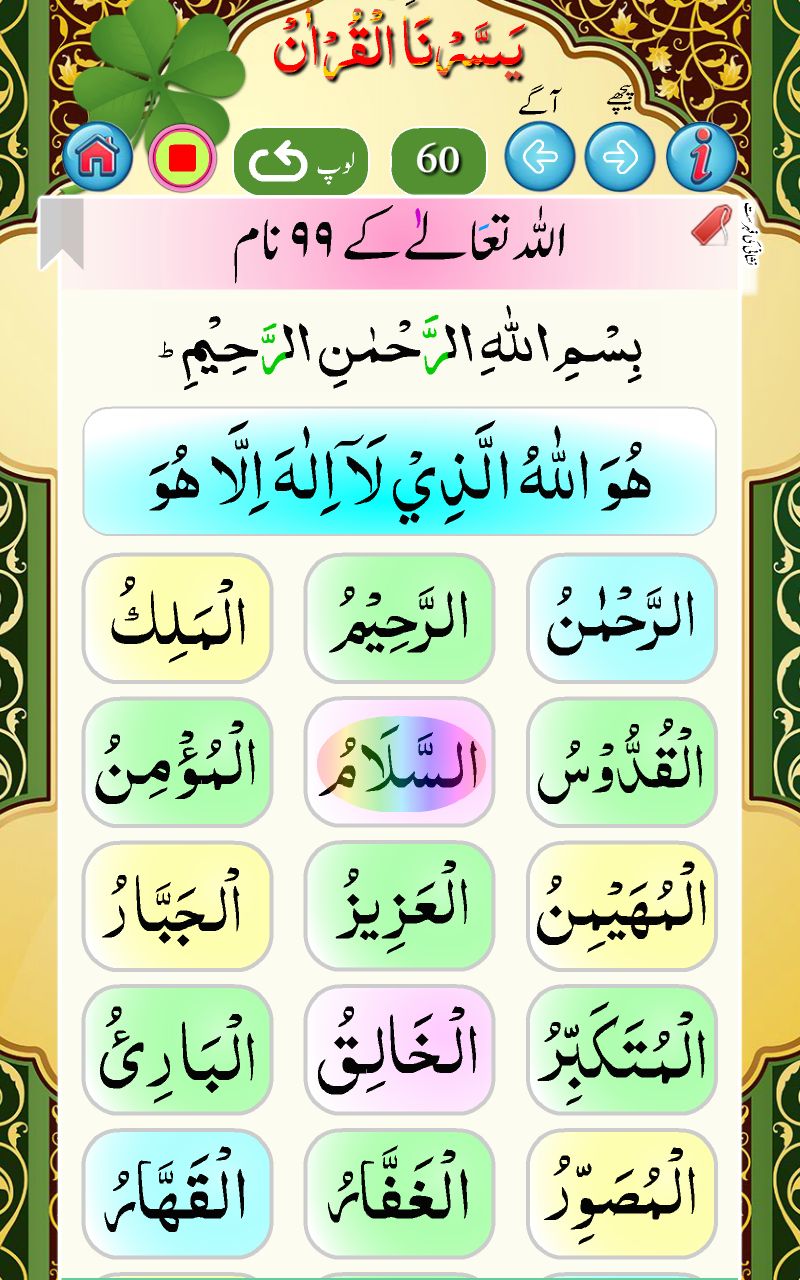 يَسَّرْنَا الْقُرْاٰنْ
پیچھے
آگے
60
لوپ
اللہ تعَالےٰ کے ۹۹ نام
نشانی کی فہرست
بِسْمِ اللّٰهِ الرَّحْمٰنِ الرَّحِيْمِ ؕ
هُوَ اللّٰهُ الَّذِيْ لَآ اِلٰهَ اِلَّا هُوَ
الرَّحْمٰنُ الرَّحِيْمُ الْمَلِكُ
الْقُدُّوْسُ السَّلَامُ الْمُؤْمِنُ
الْمُهَيْمِنُ الْعَزِيزُ الْجَبَّارُ
الْمُتَكَبِّرُ الْخَالِقُ الْبَارِئُ
الْمُصَوِّرُ الْغَفَّارُ الْقَهَّارُ